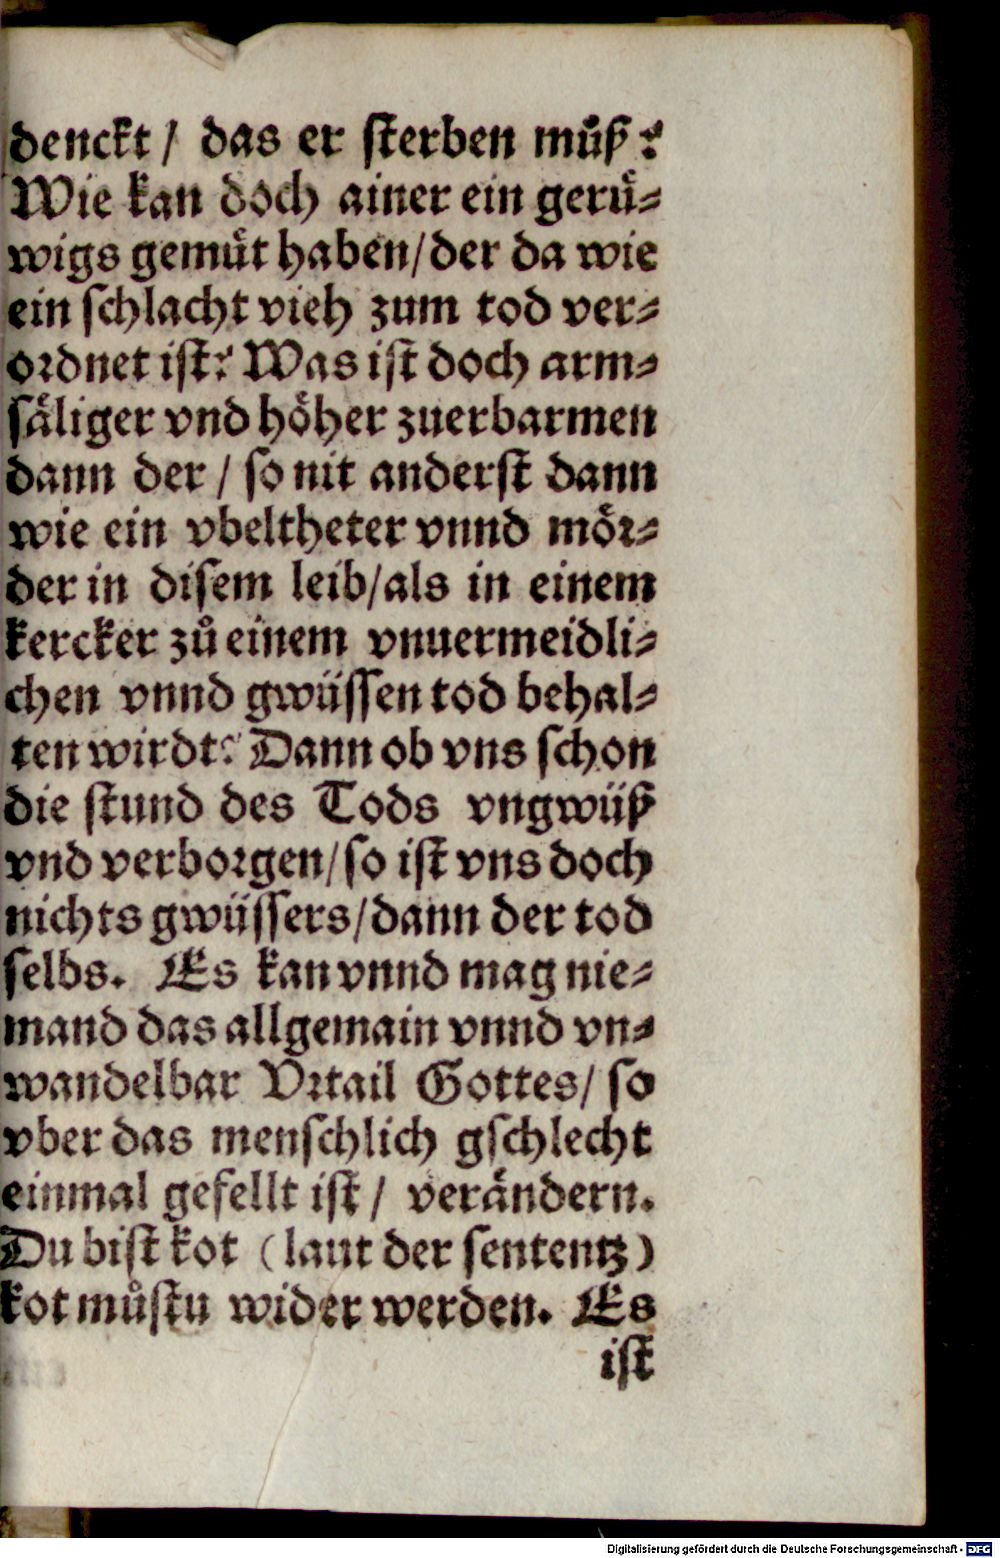 denckt / das er sterben muͦß?
Wie kan doch ainer ein geruͤ⸗
wigs gemuͤt haben/der da wie
ein schlacht vieh zum tod ver⸗
ordnet ist? Was ist doch arm⸗
saͤliger vnd hoͤher zuerbarmen
dann der / so nit anderst dann
wie ein vbeltheter vnnd moͤr⸗
der in disem leib/als in einem
kercker zuͦ einem vnuermeidli⸗
chen vnnd gwüssen tod behal⸗
ten wirdt? Dann ob vns schon
die stund des Tods vngwüß
vnd verborgen/so ist vns doch
nichts gwüssers/dann der tod
selbs. Es kan vnnd mag nie⸗
mand das allgemain vnnd vn⸗
wandelbar Vrtail Gottes/ so
vber das menschlich gschlecht
einmal gefellt ist / veraͤndern.
Du bist kot (laut der sententz)
kot muͦstu wider werden. Es
ist
Digitalisierung gefördert durch die Deutsche Forschungsgemeinschaft - DFG